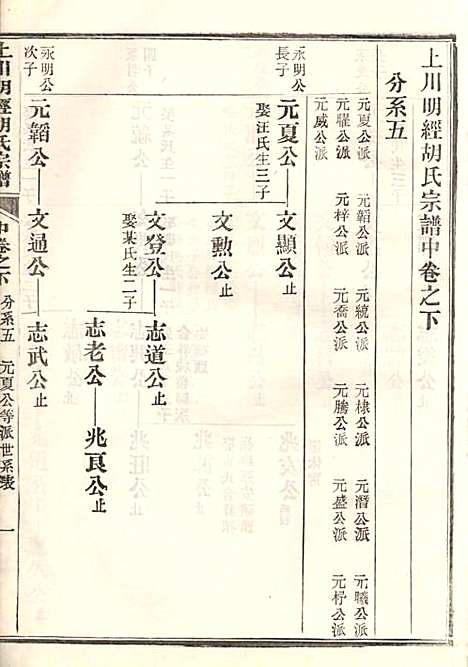 上川明經胡氏宗譜中卷之下
分系五
元夏公派 元韜公派 元統公派 元棣公派 元潛公派 元曦公派
元曜公派 元梓公派 元喬公派 元騰公派 元盛公派 元杍公派
元威公派
永明公
長子
元夏公 文顯公止
娶汪氏生三子
文勲公止
文登公 志道公止
娶某氏生二子
志老公 兆良公止
永明公
次子
元韜公 文通公止 志武公止
上川明經胡氏宗譜 中卷之下 分系五 元夏公等派世系表 一